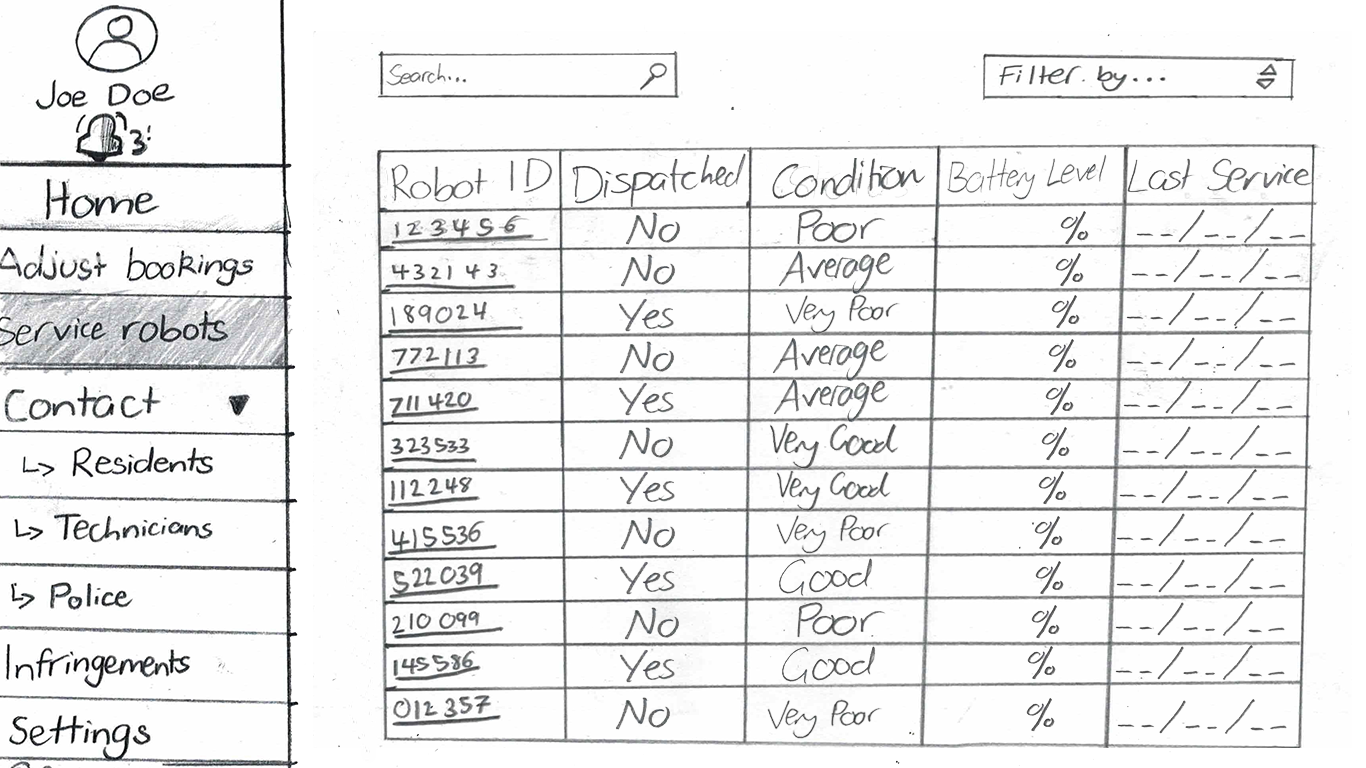 Joe Doe
3
Home
Adjust bookings
Service robots
Contact
Residents
Technicians
Police
Infringements
Settings
Search...
Filter by...
Robot ID Dispatched Condition Battery Level Last Service
123456 No Poor % --/--/--
432143 No Average % --/--/--
189024 Yes Very Poor % --/--/--
772113 No Average % --/--/--
711420 Yes Average % --/--/--
323533 No Very Good % --/--/--
112248 Yes Very Good % --/--/--
415536 No Very Poor % --/--/--
522039 Yes Good % --/--/--
210099 No Poor % --/--/--
145586 Yes Good % --/--/--
012357 No Very Poor % --/--/--